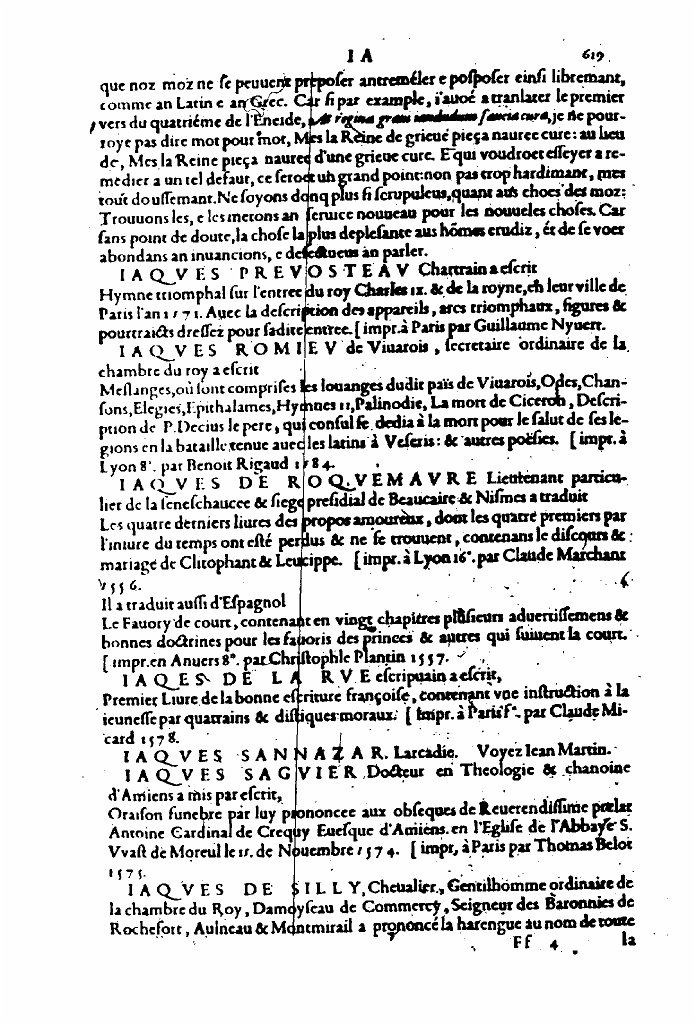 I A 619
que noz moz ne ſe peuuent prepoſer antremêler e poſpoſer einſi libremant,
comme an Latin e an Grec. Car ſi par example, i'auoé a tranlater le premier
vers du quatriéme de l'Eneide, At regina graui iamdudum ſaucia cura, je ne pour-
roye pas dire mot pour mot, Mes la Reine de grieue pieça nauree cure: au lieu
de, Mes la Reine pieça nauree d'une grieue cure. E qui voudroet eſſeyer a re-
medier a un tel defaut, ce ſeroet un grand point: non pas trop hardimant, mes
tout douſſemant. Ne ſoyons donq plus ſi ſcrupuleus, quant aus choes des moz:
Trouuons les, e les metons an ſeruice nouueau pour les nouueles choſes. Car
ſans point de doute, la choſe la plus depleſante aus hõmes erudiz, ét de ſe voer
abondans an inuancions, e defectueus an parler.
I A Q V E S P R E V O S T E A V Chartrain a eſcrit
Hymne triomphal ſur l'entree du roy Charles ix. & de la royne, en leur ville de
Paris l'an 1571. Auec la deſcription des appareils, arcs triomphaux, figures &
pourtraicts dreſſez pour ſadite entree. [ impr. à Paris par Guillaume Nyuert.
I A Q V E S R O M I E V de Viuarois, ſecretaire ordinaire de la
chambre du roy a eſcrit
Meſlanges, où ſont compriſes les louanges dudit païs de Viuarois, Odes, Chan-
ſons, Elegies, Epithalames, Hymnes 11, Palinodie, La mort de Ciceron, Deſcri-
ption de P. Decius le pere, qui conſul ſe dedia à la mort pour le ſalut de ſes le-
gions en la bataille tenue auec les latins à Veſeris: & autres poëſies. [ impr. à
Lyon 8°. par Benoit Rigaud 1584.
I A Q V E S D E R O Q V E M A V R E Lieutenant particu-
lier de la ſeneſchaucee & ſiege preſidial de Beaucaire & Niſmes a traduit
Les quatre derniers liures des propos amoureux, dont les quatre premiers par
l'iniure du temps ont eſté perdus & ne ſe trouuent, contenans le diſcours &
mariage de Clitophant & Leucippe. [ impr. à Lyon 16°. par Claude Marchant
1556.
Il a traduit auſſi d'Eſpagnol
Le Fauory de court, contenant en vingt chapitres pluſieurs aduertiſſemens &
bonnes doctrines pour les fauoris des princes & autres qui ſuiuent la court.
[ impr. en Anuers 8°. par Chriſtophle Plantin 1557.
I A Q E S D E L A R V E eſcripuain a eſcrit,
Premier Liure de la bonne eſcriture françoiſe, contenant vne inſtruction à la
ieuneſſe par quatrains & diſtiques moraux. [ Impr. à Paris f°. par Claude Mi-
card 1578.
I A Q V E S S A N N A Z A R. Larcadie. Voyez Iean Martin.
I A Q V E S S A G V I E R Docteur en Theologie & chanoine
d'Amiens a mis par eſcrit,
Oraiſon funebre par luy prononcee aux obſeques de Reuerendiſſime prelat
Antoine Cardinal de Crequy Eueſque d'Amiens, en l'Egliſe de l'Abbaye S.
Vvaſt de Moreul le 15. de Nouembre 1574. [ impr, à Paris par Thomas Belot
1575.
I A Q V E S D E S I L L Y, Cheualier, Gentilhomme ordinaire de
la chambre du Roy, Damoyſeau de Commercy, Seigneur des Baronnies de
Rochefort, Aulneau & Montmirail a prononcé la harengue au nom de toute
Ff 4 la